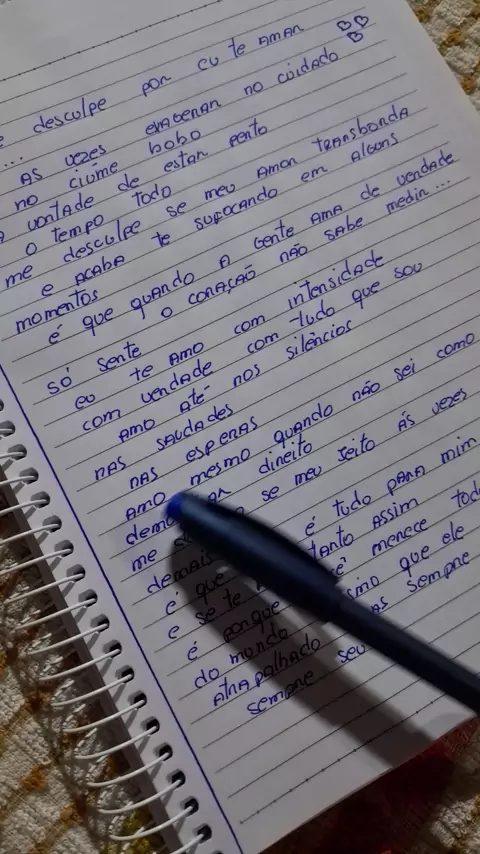 desculpe por eu te amar
... às vezes exagerar no cuidado
no ciúme bobo
vontade de estar perto
o tempo todo
me desculpe se meu amor transborda
e acaba te sufocando em alguns
momentos
é que quando a gente ama de verdade
o coração não sabe medir...
só sente
eu te amo com intensidade
com verdade com tudo que sou
amo até nos silêncios
nas saudades
nas esperas
amo mesmo quando não sei como
direito
me se meu jeito ás vezes
demais
é que é tudo para mim
e se te tanto assim
é porque merece todo
do mundo que ele
atrapalhado mas sempre
sempre seu